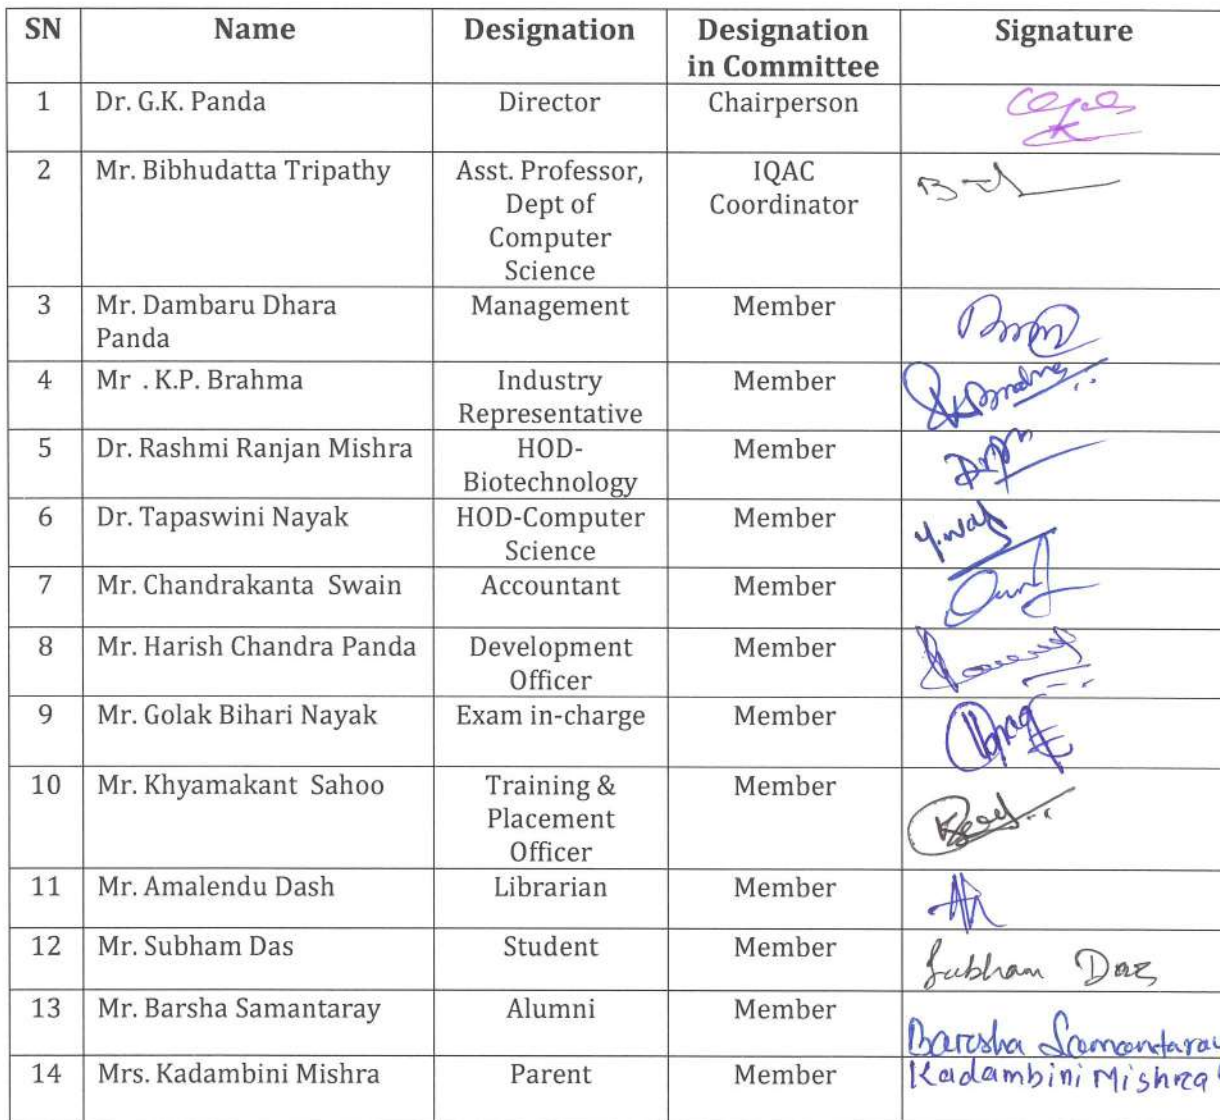 SN Name Designation Designation Signature
in Committee
1 Dr. G.K. Panda Director Chairperson
2 Mr. Bibhudatta Tripathy Asst. Professor, IQAC
Dept of Coordinator
Computer
Science
3 Mr. Dambaru Dhara Management Member
Panda
4 Mr . K.P. Brahma Industry Member
Representative
5 Dr. Rashmi Ranjan Mishra HOD- Member
Biotechnology
6 Dr. Tapaswini Nayak HOD-Computer Member
Science
7 Mr. Chandrakanta Swain Accountant Member
8 Mr. Harish Chandra Panda Development Member
Officer
9 Mr. Golak Bihari Nayak Exam in-charge Member
10 Mr. Khyamakant Sahoo Training & Member
Placement
Officer
11 Mr. Amalendu Dash Librarian Member
12 Mr. Subham Das Student Member Subham Das
13 Mr. Barsha Samantaray Alumni Member Barsha Samantaray
14 Mrs. Kadambini Mishra Parent Member Kadambini Mishra